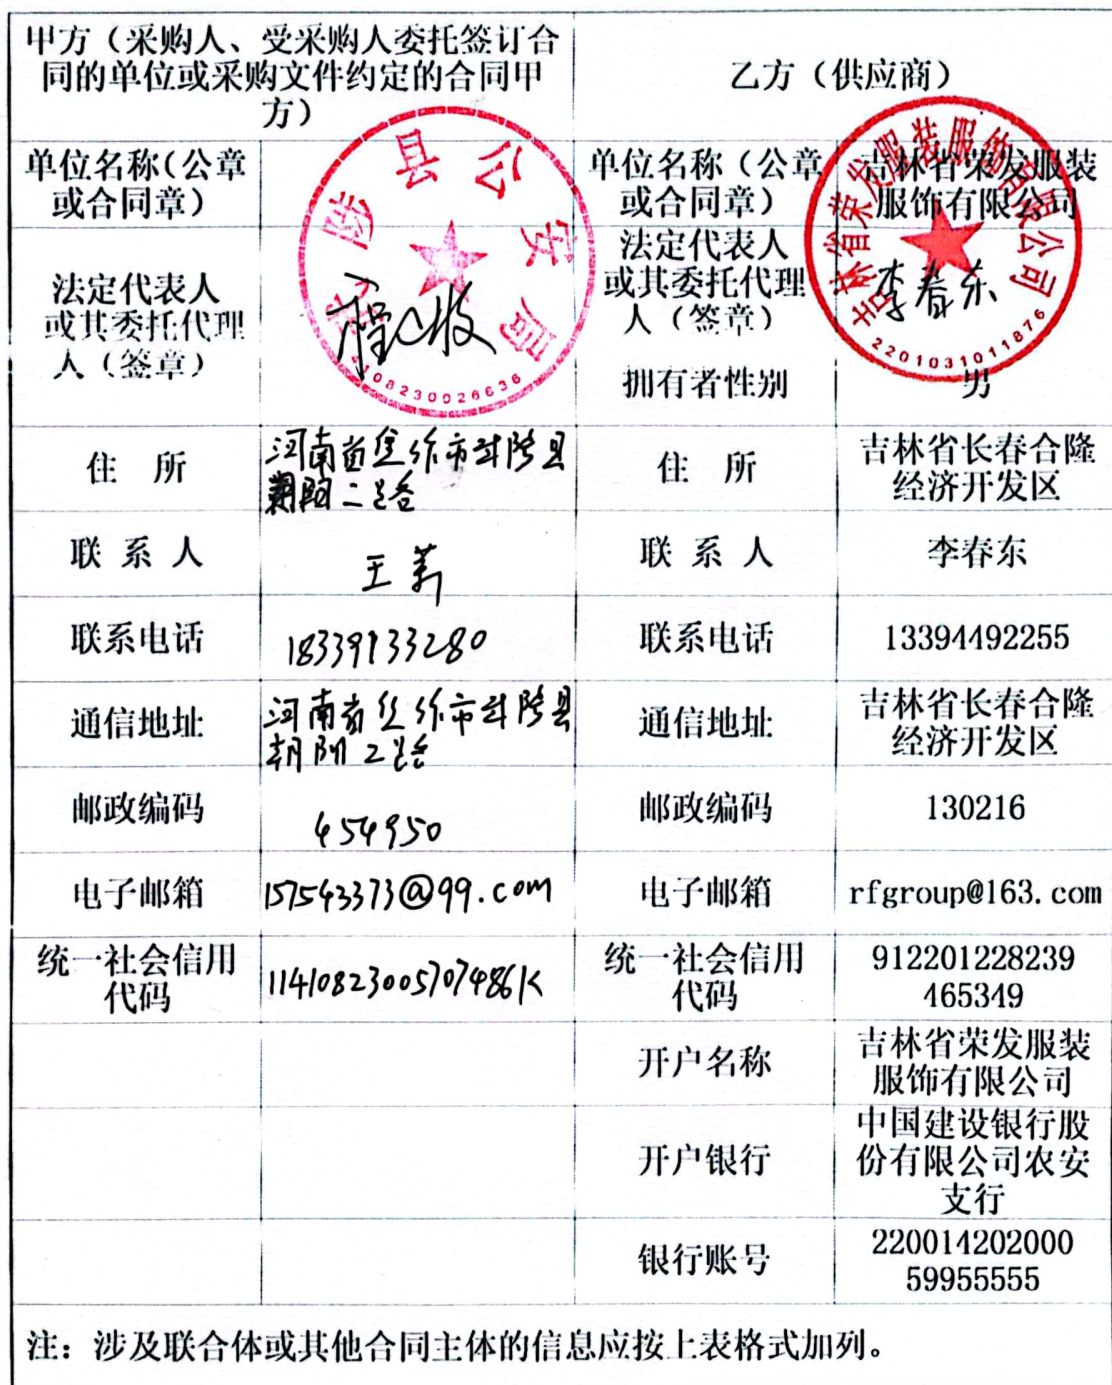 甲方（采购人、受采购人委托签订合
同的单位或采购文件约定的合同甲
方）
乙方（供应商）
单位名称（公章
或合同章）
县公安局
4108230026636
单位名称（公章
或合同章）
吉林省荣发服装
服饰有限公司
吉林省荣发服装服饰有限公司
2201031011876
法定代表人
或其委托代理
人（签章）
法定代表人
或其委托代理
人（签章）
李春东
拥有者性别
男
住 所
河南省焦作市武陟县
朝阳二路
住 所
吉林省长春合隆
经济开发区
联 系 人
王莉
联 系 人
李春东
联系电话
18339133280
联系电话
13394492255
通信地址
河南省焦作市武陟县
朝阳2路
通信地址
吉林省长春合隆
经济开发区
邮政编码
454950
邮政编码
130216
电子邮箱
157543373@99.com
电子邮箱
rfgroup@163.com
统一社会信用
代码
11410823005707486K
统一社会信用
代码
912201228239
465349
开户名称
吉林省荣发服装
服饰有限公司
开户银行
中国建设银行股
份有限公司农安
支行
银行账号
220014202000
59955555
注：涉及联合体或其他合同主体的信息应按上表格式加列。